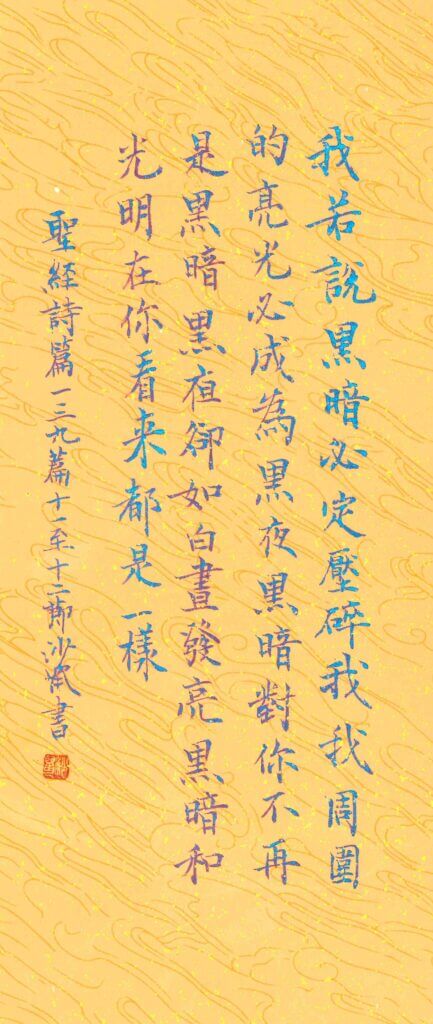 我若說黑暗必定壓碎我我周圍
的亮光必成為黑夜黑暗對你不再
是黑暗黑夜卻如白晝發亮黑暗和
光明在你看来都是一樣
聖经詩篇一三九篇十一至十二節沙漠書